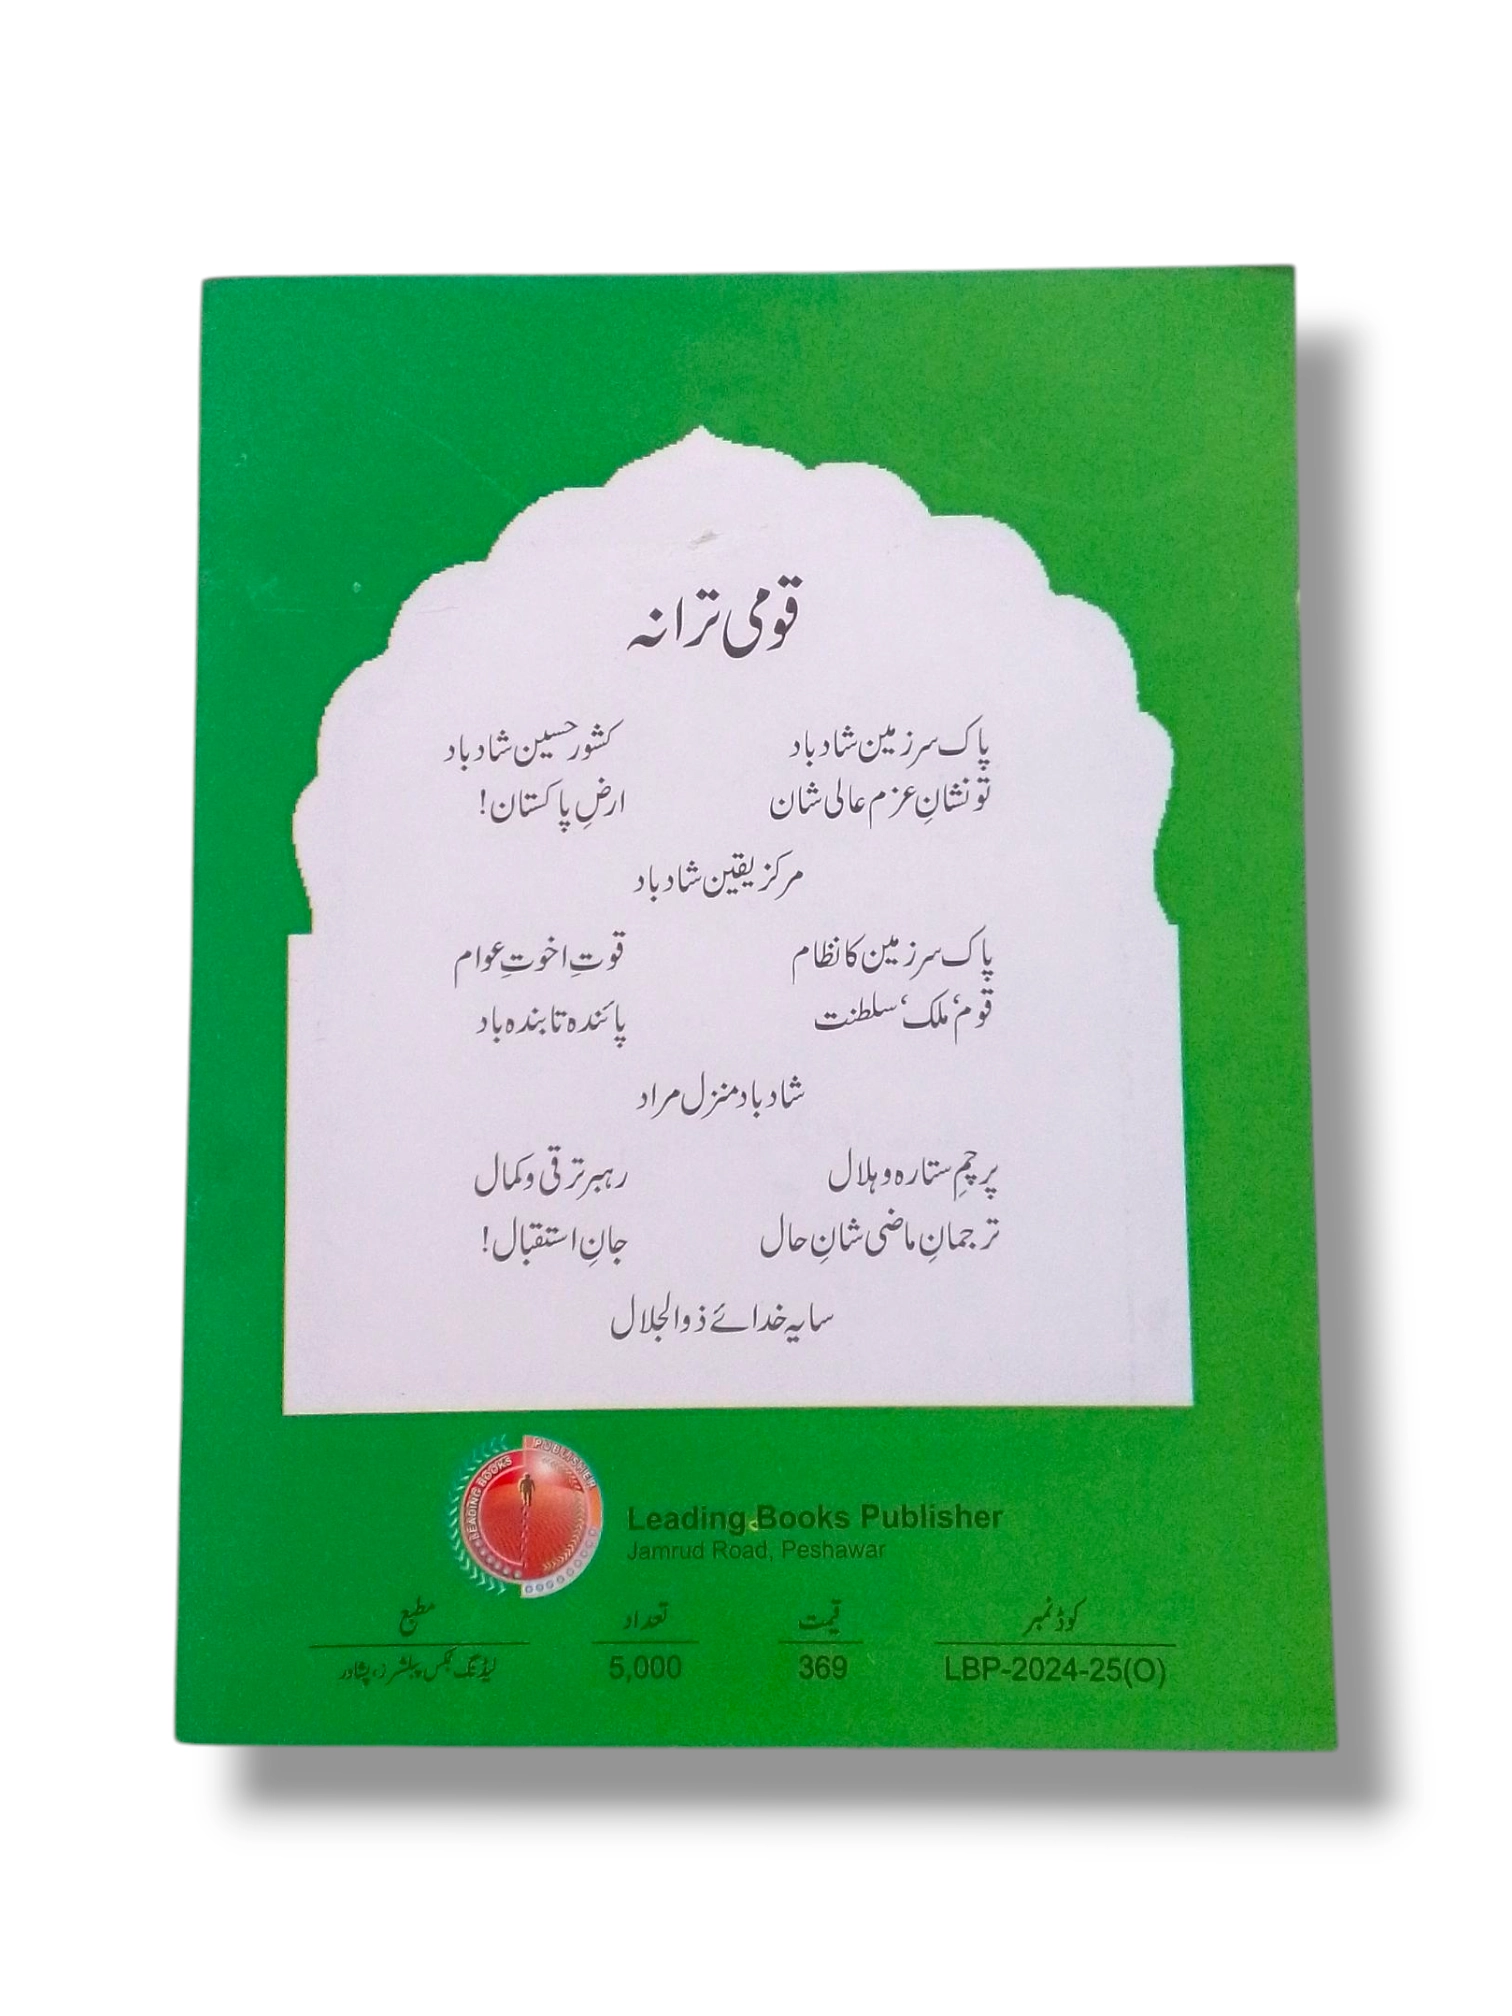 قومی ترانہ
پاک سرزمین شاد باد کشور حسین شاد باد
تو نشانِ عزم عالی شان ارضِ پاکستان!
مرکز یقین شاد باد
پاک سرزمین کا نظام قوتِ اخوتِ عوام
قوم، ملک، سلطنت پائندہ تابندہ باد
شاد باد منزل مراد
پرچمِ ستارہ و ہلال رہبر ترقی و کمال
ترجمانِ ماضی شانِ حال جانِ استقبال!
سایہ خدائے ذوالجلال
LEADING BOOKS PUBLISHER
Leading Books Publisher
Jamrud Road, Peshawar
کوڈ نمبر قیمت تعداد مطبع
LBP-2024-25(O) 369 5,000 لیڈنگ بکس پبلشرز، پشاور